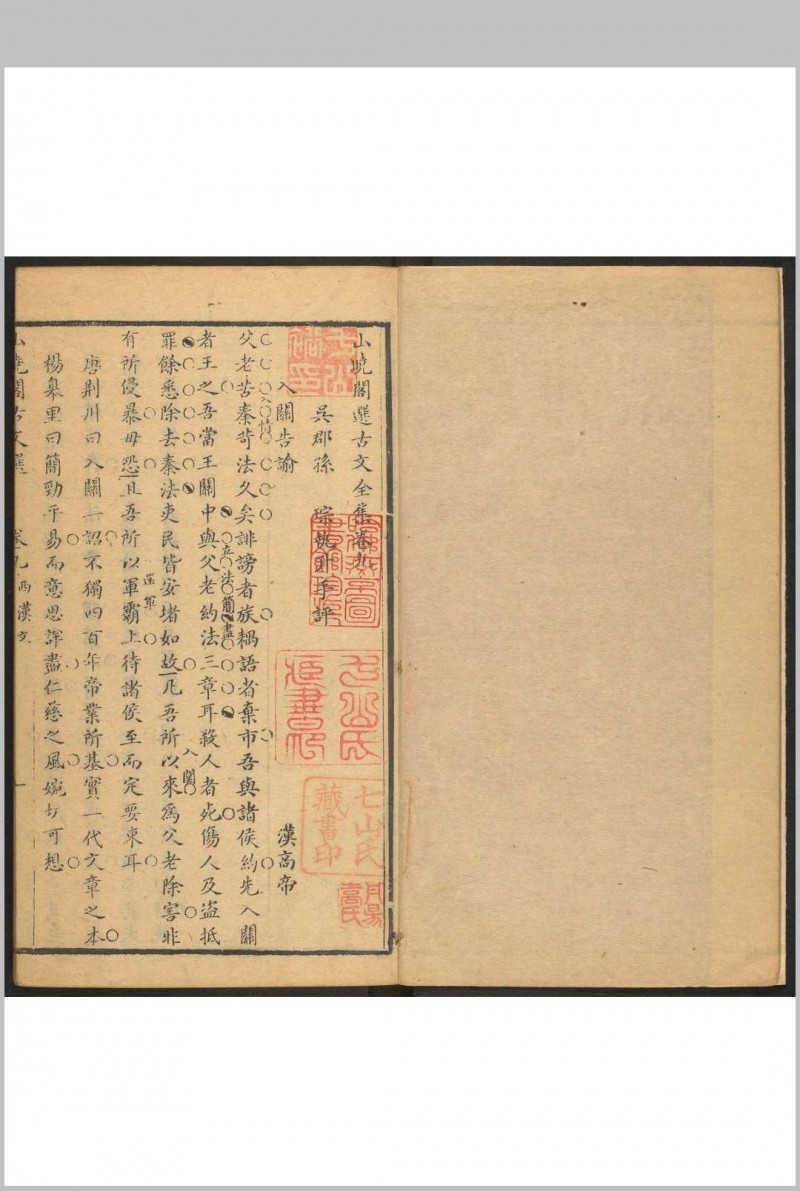 山曉閣選古文全集卷九
吳郡孫 琮執升手評
入關告諭 漢高帝
父老苦秦苛法久矣誹謗者族耦語者棄市吾與諸侯約先入關
者王之吾當王關中與父老約法三章耳殺人者死傷人及盜抵
立法簡盡
罪餘悉除去秦法吏民皆安堵如故凡吾所以來為父老除害非
入關
有所侵暴毋恐且吾所以軍霸上待諸侯至而定要束耳
還軍
唐荊川曰入關一詔不獨四百年帝業所基實一代文章之本
楊皋里曰簡勁平易而意思詳盡仁慈之風婉切可想
山曉閣古文選 卷九 西漢文 一
七山氏
藏書印